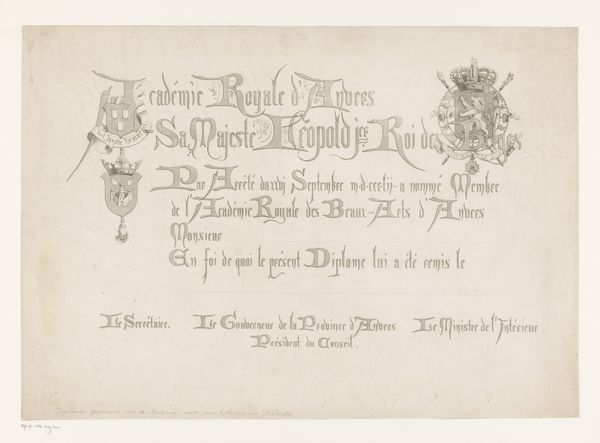 Académie Royale d'Anvers
Sa Majesté Léopold 1er Roi des Belges
Par Arrêté du September a nommé Membre
de l'Académie Royale des Beaux-Arts d'Anvers
Monsieur
En foi de quoi le présent Diplome lui a été remis le
Le Secrétaire. Le Gouverneur de la Province d'Anvers Le Ministre de l'Intérieur.
Président du Conseil.